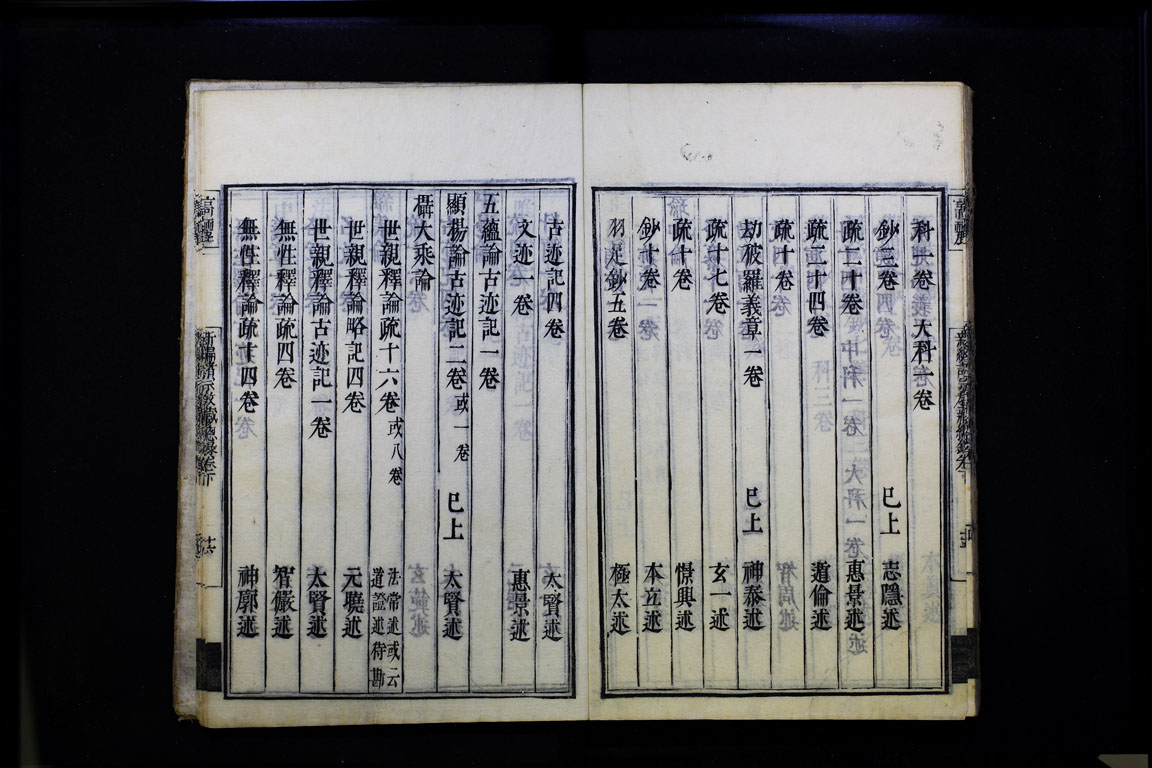 科一卷 大科一卷
鈔三卷 已上 志隱述
疏二十卷 惠景述
疏二十四卷 遁倫述
疏十卷
劫破羅義章一卷 已上 神泰述
疏十七卷 玄一述
疏十卷 憬興述
鈔十卷 本立述
羽足鈔五卷 極太述
古迹記四卷 太賢述
文迹一卷 惠景述
五蘊論古迹記一卷
顯揚論古迹記二卷或一卷 已上 太賢述
攝大乘論
世親釋論疏十六卷或八卷 法常述或云道證述待勘
世親釋論略記四卷 元曉述
世親釋論古迹記一卷 太賢述
無性釋論疏四卷 智儼述
無性釋論疏十四卷 神廓述
新編諸宗教藏總錄卷下
十六